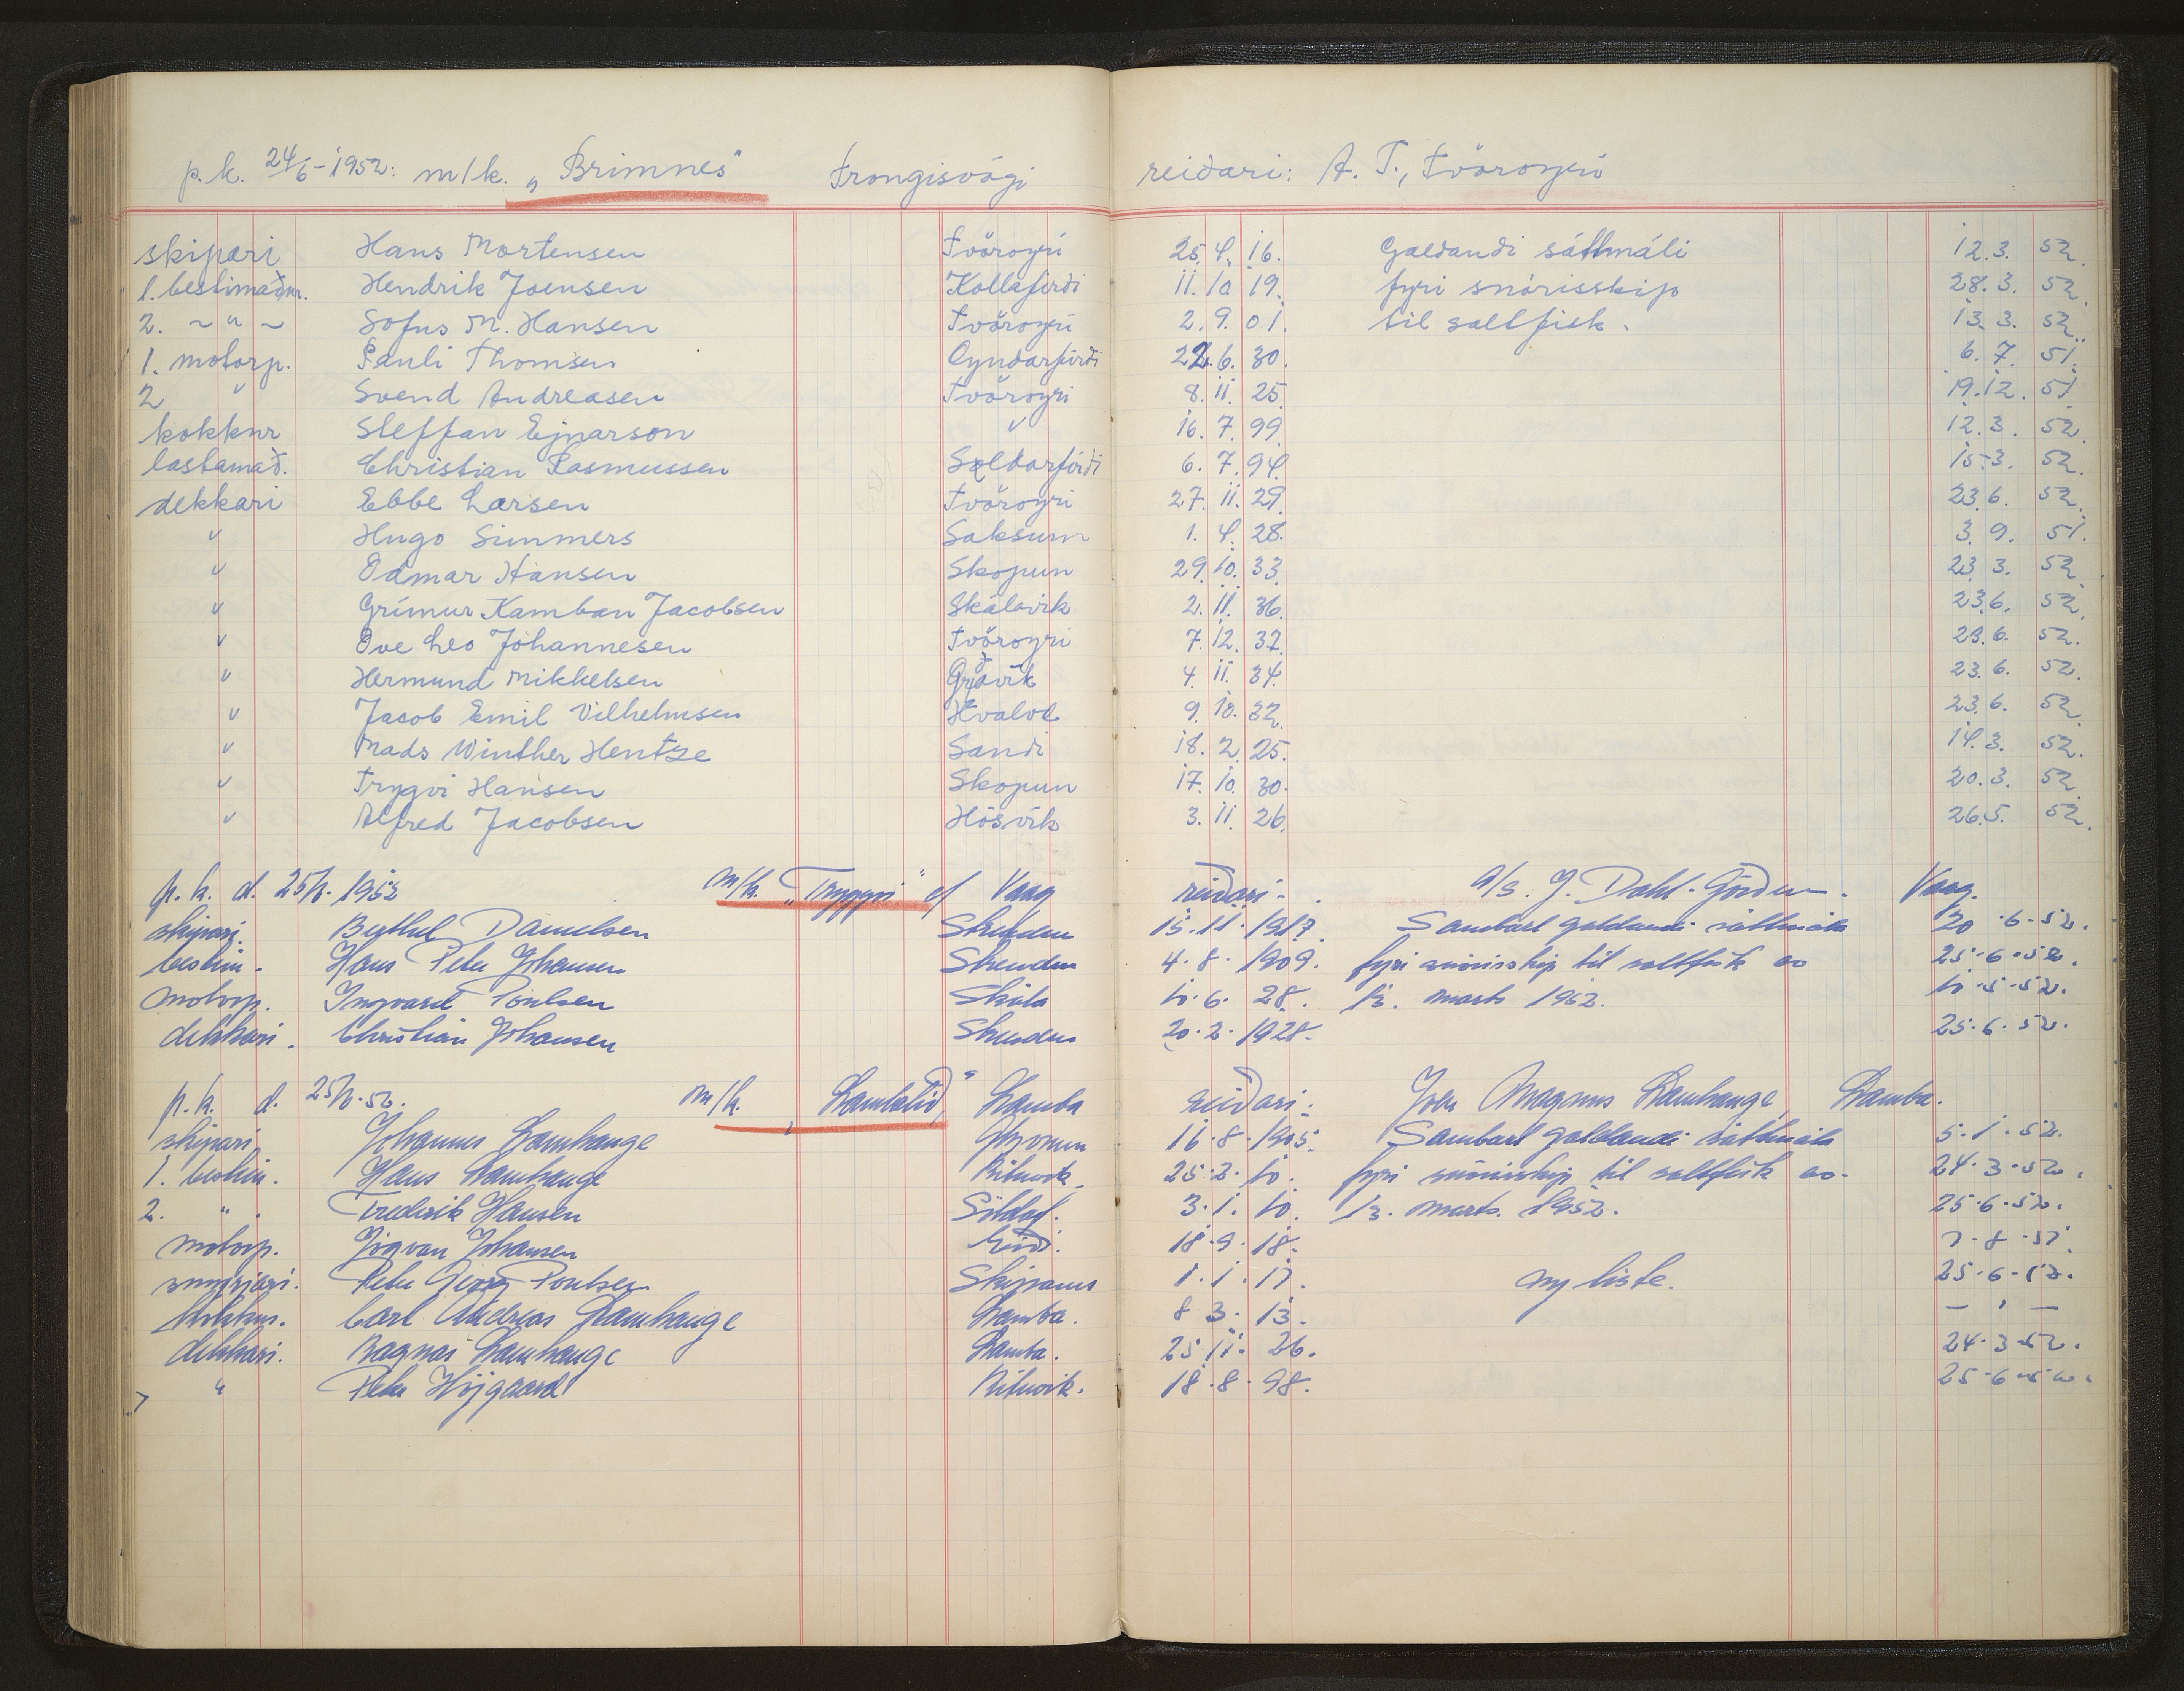 p.k. 24/6-1952: m/k. „Brimnes" Trongisvági reiðari: A. T., Tvöroyri
skipari Hans Mortensen Tvöroyri 25. 4. 16. Galdandi sáttmáli 12.3. 52.
1. bestimaður. Hendrik Joensen Kollafirði 11. 10 19. fyri snörisskip 28.3. 52.
2. ~ " ~ Sofus M. Hansen Tvöroyri 2. 9. 01. til saltfisk. 13.3. 52.
1. motorp. Pauli Thomsen Oyndarfirði 22. 6. 30. 6. 7. 51.
2 " Svend Andreasen Tvöroyri 8. 11. 25. 19.12. 51
kokkur Steffan Ejnarson " 16. 7. 99. 12.3. 52.
lastamað. Christian Rasmussen Søldarfirði 6. 7. 94. 15.3. 52.
dekkari Ebbe Larsen Tvöroyri 27. 11. 29. 23.6. 52.
" Hugo Simmers Saksun 1. 4. 28. 3. 9. 51.
" Odmar Hansen Skopun 29. 10. 33. 23. 3. 52.
" Grímur Kamban Jacobsen Skálavik 2. 11. 36. 23.6. 52.
" Ove Leo Johannesen Tvöroyri 7. 12. 32. 23.6. 52.
" Hermund Mikkelsen 4. 11. 34. 23.6. 52.
" Jacob Emil Vilhelmsen Hvalvi 9. 10. 32. 23.6. 52.
" Mads Winther Hentze Sandi 18. 2. 25. 14.3. 52.
" Trygvi Hansen Skopun 17. 10. 30. 20.3. 52.
" Alfred Jacobsen Hósvík 3. 11. 26. 26.5. 52.
p. k. d. 25/6. 1952 m/k. „Tryggvi" af Vaag reiðari. A/s. J. Dahl- Vaag.
skipari. Berthel Danielsen Strenden 15. 11. 1917. Sambart galdandi sáttmála 20.6.52.
bestim. Hans Peter Johansen Strenden 4. 8. 1909. fyri snörisskip til saltfisk av 25.6.52.
motorp. Ingvard Poulsen Skála 10. 6. 28. 13. marts 1952. 10.5.52.
dekkari. Christian Johansen Strenden 20. 2. 1928. 25.6.52.
p. k. d. 25/6.52. m/k. „Lambalíð" Lamba reiðari: Joen Magnus Lamhauge, Lamba.
skipari Johannus Lamhauge 16. 8. 1905. Sambart galdandi sáttmála 5.1.52.
1. bestim. Hans Lamhauge Rituvík 25. 2. 10. fyri snörisskip til saltfisk av 24.3.52.
2. " Frederik Hansen Söldaf. 3. 1. 10. 13. marts. 1952. 25.6.52.
motorp. Jógvan Johansen Eiði. 18. 9. 18. 7.8.51.
Peter Georg Poulsen Skipanes 1. 1. 17. ny liste. 25.6.52.
kokkur. Carl Andrias Lamhauge Lamba. 8 3. 13. — " —
dekkari. Ragnar Lamhauge Lamba. 25. 11. 26. 24.3.52.
" Peter Højgaard Rituvík. 18. 8. 98. 25.6.52.